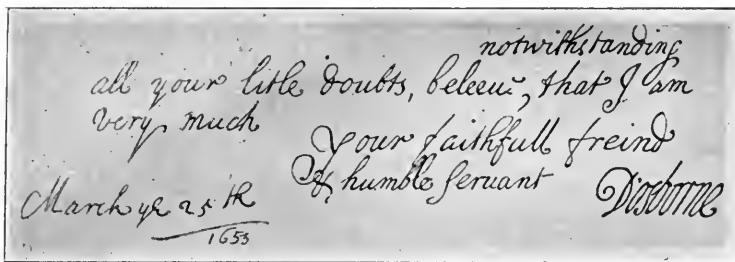 notwithstanding
all your litle doubts, beleeve, that I am
very much
Your faithfull freind
& humble servant
D'osborne
March ye 25th
1653